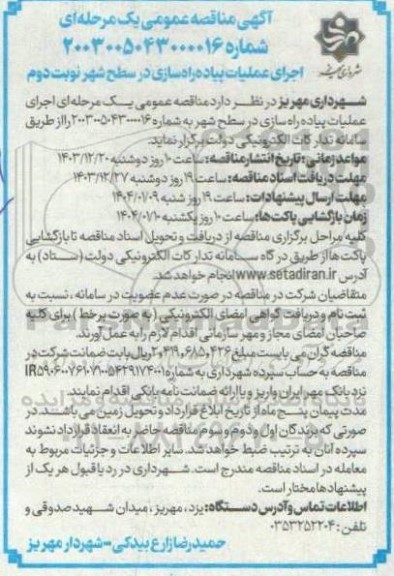 آگهی مناقصه عمومی یک مرحله‌ای
شماره ۲۰۰۳۰۰۵۰۴۳۰۰۰۰۱۶
اجرای عملیات پیاده‌راه‌سازی در سطح شهر نوبت دوم
شهرداری مهریز در نظر دارد مناقصه عمومی یک مرحله‌ای اجرای
عملیات پیاده راه سازی در سطح شهر به شماره ۲۰۰۳۰۰۵۰۴۳۰۰۰۰۱۶ را از طریق
سامانه تدارکات الکترونیکی دولت برگزار نماید.
مواعد زمانی: تاریخ انتشار مناقصه: ساعت ۱۰ روز دوشنبه ۱۴۰۳/۱۲/۲۰
مهلت دریافت اسناد مناقصه: ساعت ۱۹ روز دوشنبه ۱۴۰۳/۱۲/۲۷
مهلت ارسال پیشنهادات: ساعت ۱۹ روز شنبه ۱۴۰۴/۰۱/۰۹
زمان بازگشایی پاکت‌ها: ساعت ۱۰ روز یکشنبه ۱۴۰۴/۰۱/۱۰
کلیه مراحل برگزاری مناقصه از دریافت و تحویل اسناد مناقصه تا بازگشایی
پاکت ها از طریق درگاه سامانه تدارکات الکترونیکی دولت (ستاد) به
آدرس www.setadiran.ir انجام خواهد شد.
متقاضیان شرکت در مناقصه در صورت عدم عضویت در سامانه، نسبت به
ثبت نام و دریافت گواهی امضای الکترونیکی (به صورت برخط) برای کلیه
صاحبان امضای مجاز و مهر سازمانی اقدام لازم را به عمل آورند.
مناقصه گران می بایست مبلغ ریال بابت ضمانت شرکت در
مناقصه به حساب سپرده شهرداری به شماره
نزد بانک مهر ایران واریز و یا ارائه ضمانت نامه بانکی اقدام نمایند.
مدت پیمان پنج ماه از تاریخ ابلاغ قرارداد و تحویل زمین می باشند. در
صورتی که برندگان اول و دوم و سوم مناقصه حاضر به انعقاد قرارداد نشوند
سپرده آنان به ترتیب ضبط خواهد شد. سایر اطلاعات و جزئیات مربوط به
معامله در اسناد مناقصه مندرج است. شهرداری در رد یا قبول هر یک از
پیشنهادها مختار است.
اطلاعات تماس و آدرس دستگاه: یزد، مهریز، میدان شهید صدوقی و
تلفن: ۰۳۵۳۲۵۲۲۰۴
حمیدرضا زارع بیدکی - شهردار مهریز